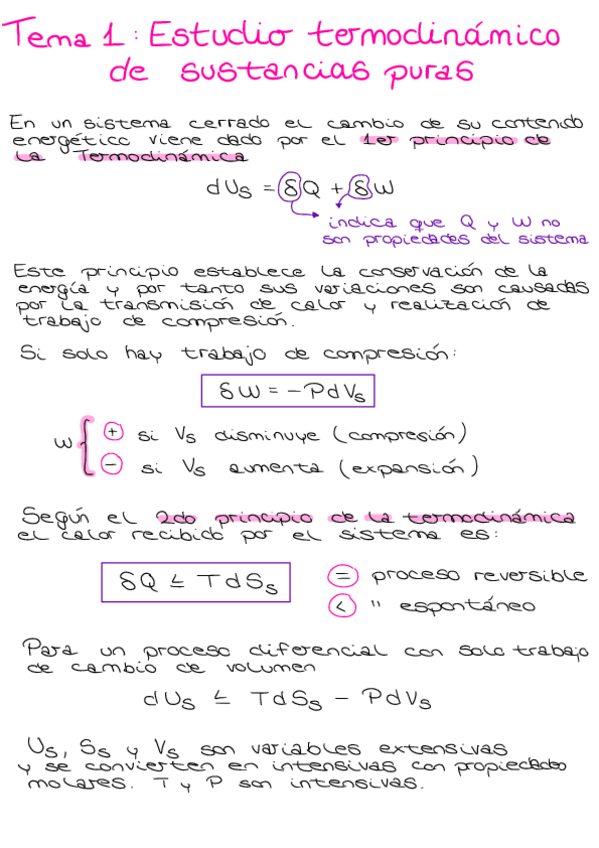 Tema 1: Estudio termodinámico
de sustancias puras
En un sistema cerrado el cambio de su contenido
energético viene dado por el 1er principio de
la Termodinámica
dUs = δQ + δW
indica que Q y W no
son propiedades del sistema
Este principio establece la conservación de la
energía y por tanto sus variaciones son causadas
por la transmisión de calor y realización de
trabajo de compresión.
Si solo hay trabajo de compresión:
δW = -PdVs
w { + si Vs disminuye (compresión)
- si Vs aumenta (expansión)
Según el 2do principio de la termodinámica
el calor recibido por el sistema es:
δQ ≤ TdSs
= proceso reversible
< " espontáneo
Para un proceso diferencial con solo trabajo
de cambio de volumen
dUs ≤ TdSs - PdVs
Us, Ss y Vs son variables extensivas
y se convierten en intensivas con propiedades
molares. T y P son intensivas.